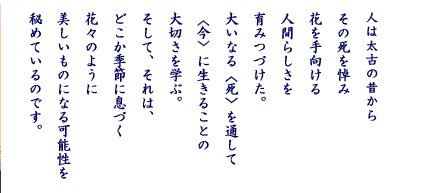 人は太古の昔から
その死を悼み
花を手向ける
人間らしさを
育みつづけた。
大いなる〈死〉を通して
〈今〉に生きることの
大切さを学ぶ。
そして、それは、
どこか季節に息づく
花々のように
美しいものになる可能性を
秘めているのです。